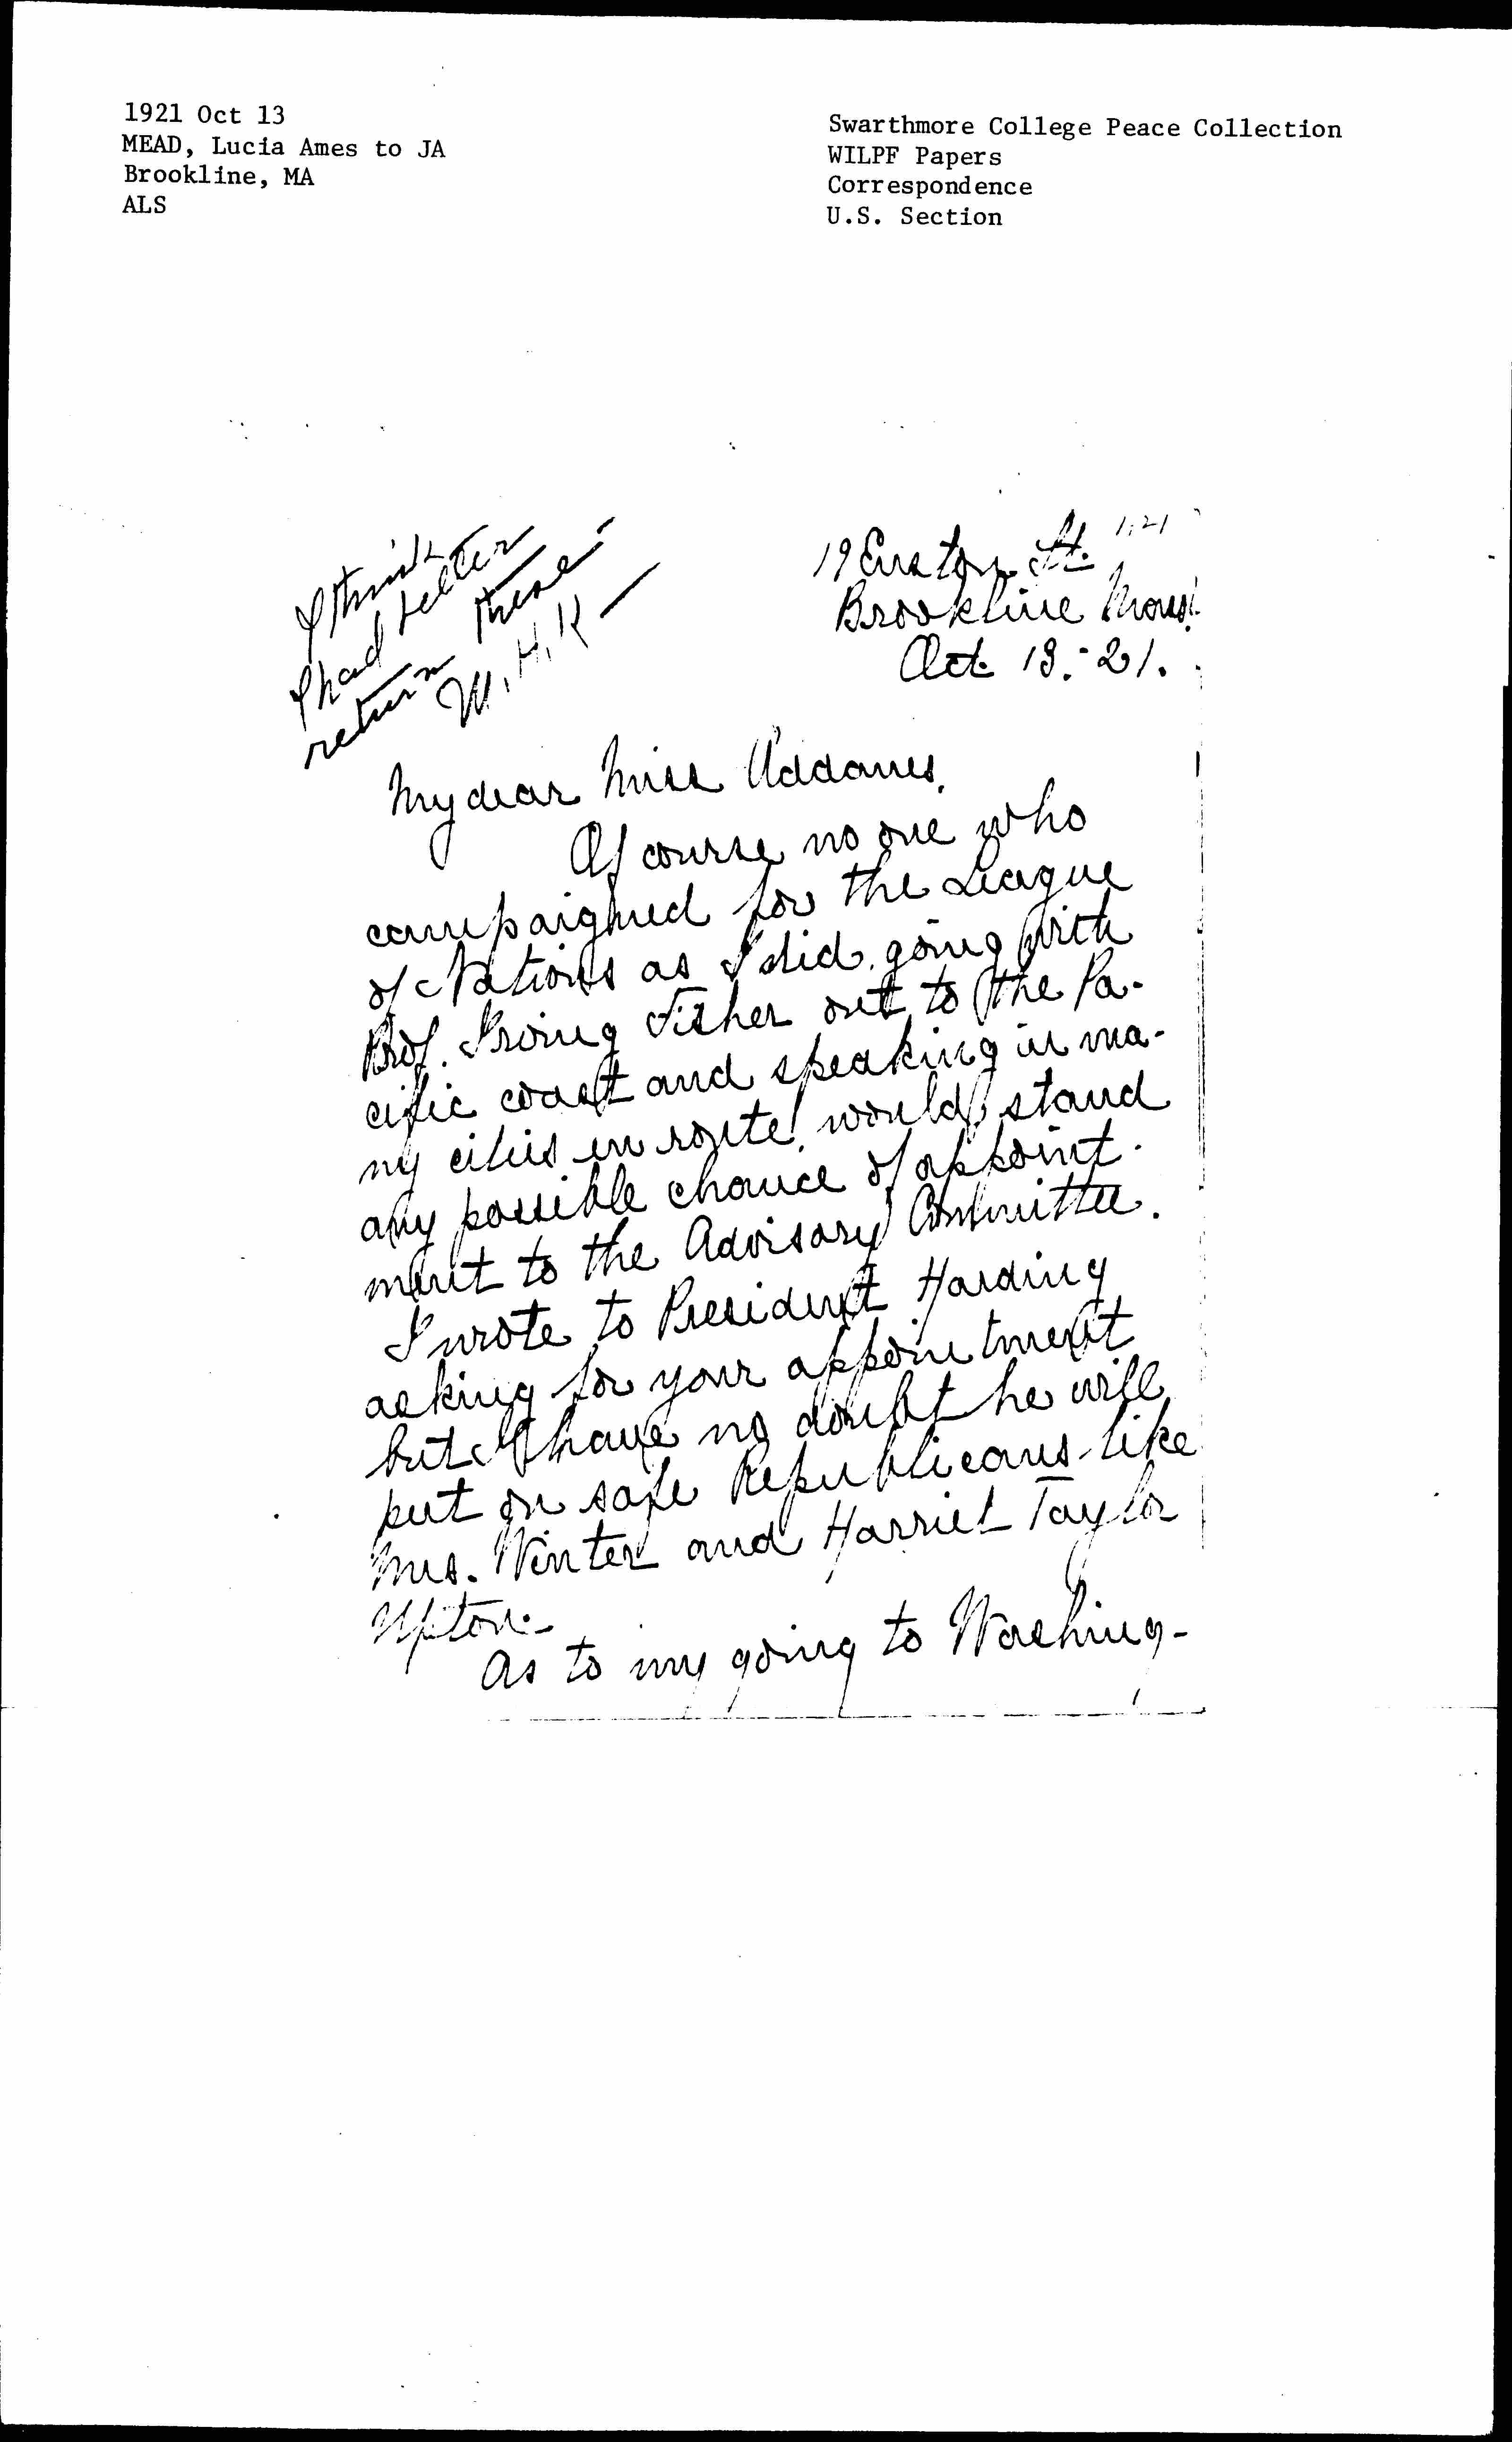 1921 Oct 13
MEAD, Lucia Ames to JA
Brookline, MA
ALS
Swarthmore College Peace Collection
WILPF Papers
Correspondence
U.S. Section
I think
I had better
return these
W. H. K—
19 Euston St.
Brookline Mass.
Oct. 13.-21.
My dear Miss Addams,
Of course no one who
campaighned for the League
of Nations as I did, going with
Prof. Irving Fisher out to the Pa-
cific coast and speaking in ma-
ny cities en route, would stand
any possible chance of appoint-
ment to the Advisory Committee.
I wrote to President Harding
asking for your appointment
but I have no doubt he will
put on safe Republicans like
Mrs. Winter and Harriet Taylor
Upton.-
As to my going to Washing-